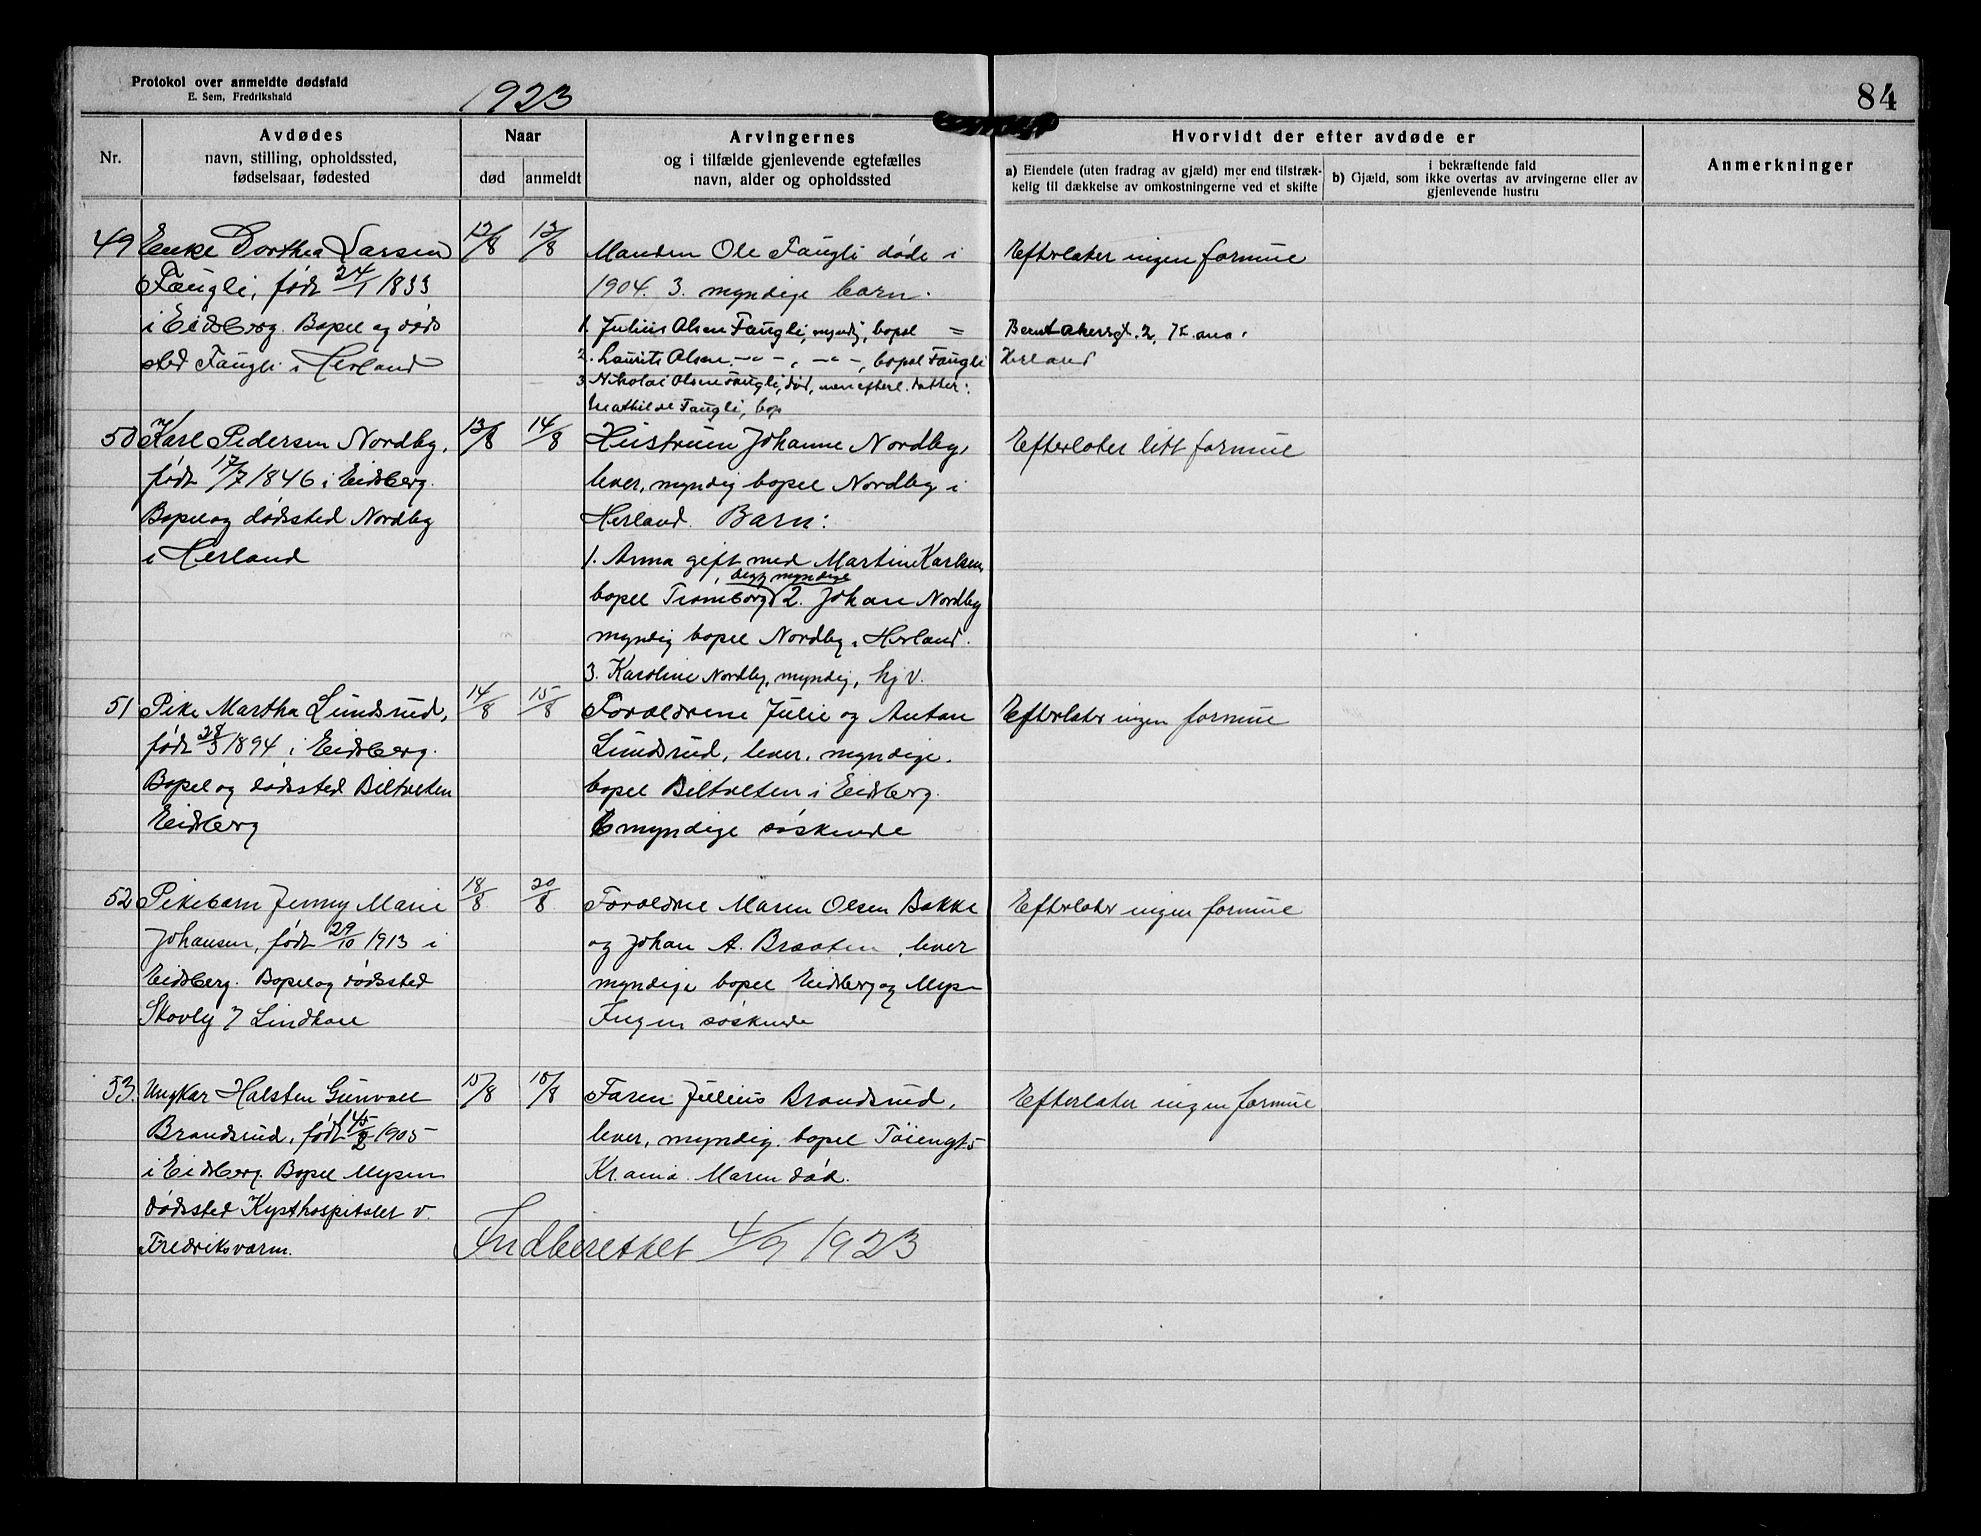 Protokol over anmeldte dødsfald
E. Sem, Fredrikshald
1923
84
Nr.
Avdødes
navn, stilling, opholdssted,
fødselsaar, fødested
Naar
død
anmeldt
Arvingernes
og i tilfælde gjenlevende egtefælles
navn, alder og opholdssted
Hvorvidt der efter avdøde er
a) Eiendele (uten fradrag av gjæld) mer end tilstræk-
kelig til dækkelse av omkostningerne ved et skifte
i bekræftende fald
b) Gjæld, som ikke overtas av arvingerne eller av
gjenlevende hustru
Anmerkninger
49 Enke Dorthea Larsen
Faugli, født 24/1 1833
i Eidsberg. Bopel og døds
sted Faugli i Herland
12/8
13/8
Manden Ole Faugli døde i
1904. 3. myndige barn.
1. Julius Olsen Faugli, myndig, bopel =
2. Laurits Olsen -"- , -"- , bopel Faugli
3. Nikolai Olsen Faugli, død, men efterl. datter:
Mathilde Faugli, bop
Efterlater ingen formue
Bernt Akersgt. 2, Kr.ania.
Herland
50 Karl Pedersen Nordby,
født 17/7 1846 i Eidsberg.
Bopel og dødssted Nordby
i Herland
13/8
14/8
Hustruen Johanne Nordby,
lever, myndig bopel Nordby i
Herland. Barn:
1. Anna gift med Martin Karlsen,
, begge myndige
bopel Trømborg 2. Johan Nordby
myndig bopel Nordby, Herland.
3. Karoline Nordby, myndig, hj v.
Efterlater litt formue
51 Pike Martha Lundsrud,
født 28/3 1894 i Eidsberg.
Bopel og dødssted Biltvelten
Eidsberg
14/8
15/8
Forældrene Julie og Anton
Lundsrud, lever, myndige.
bopel Biltvelten i Eidsberg.
6 myndige søskende
Efterlater ingen formue
52 Pikebarn Jenny Marie
Johansen, født 29/10 1913 i
Eidsberg. Bopel og dødssted
Skovly Lindhol
18/8
20/8
Forældre Maren Olsen Bakke
og Johan A. Braaten, lever
myndige bopel Eidsberg og Mysen
Ingen søskende
Efterlater ingen formue
53. Ungkar Halsten Gunvall
Brandsrud, født 15/2 1905
i Eidsberg. Bopel Mysen
dødssted Kysthospitalet v.
Fredriksværn.
15/8
18/8
Faren Julius Brandsrud,
lever, myndig. bopel Tøiengt 5
Kr.ania. Moren død.
Efterlater ingen formue
Indberettet 4/9 1923